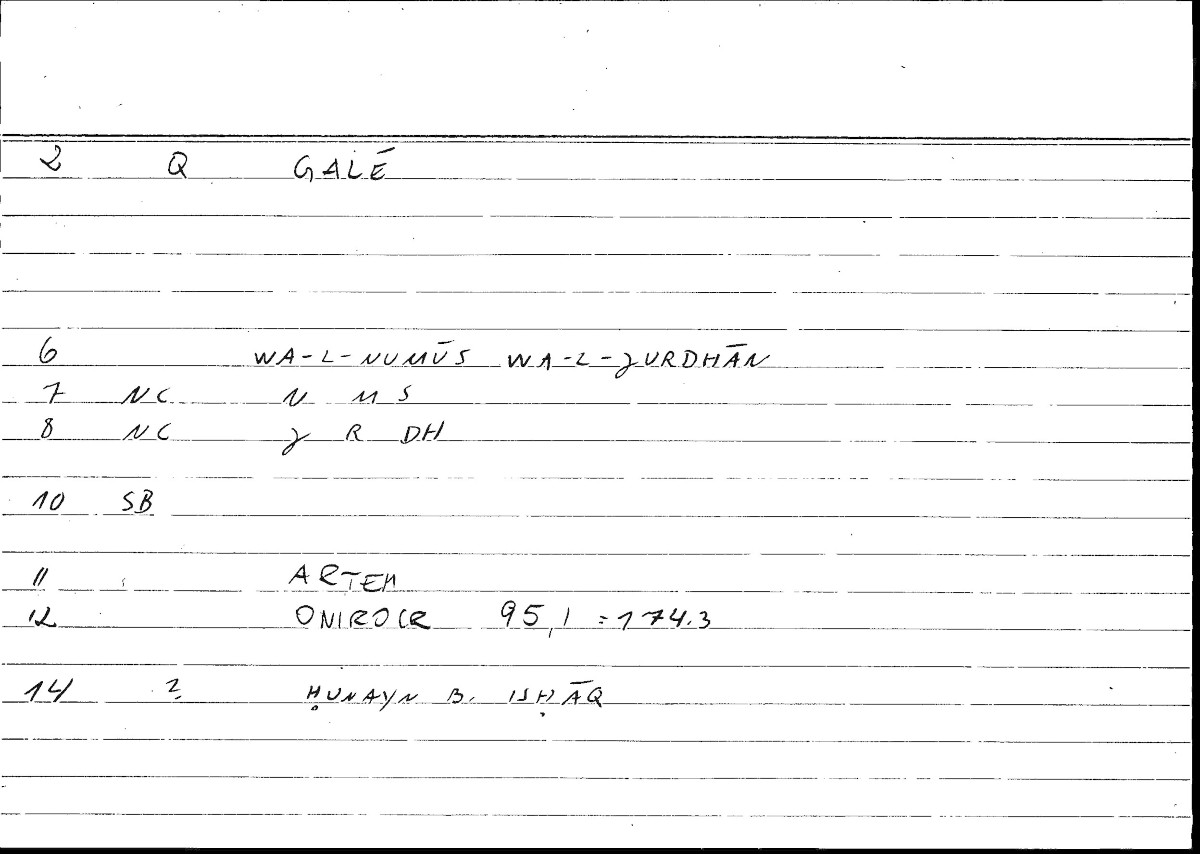 2 Q GALĒ
6 WA-L-NUMŪS WA-L-JURDHĀN
7 NC N M S
8 NC J R DH
10 SB
11 ARTEM
12 ONIROCR 95,1 = 174.3
14 ? ḤUNAYN B. ISḤĀQ